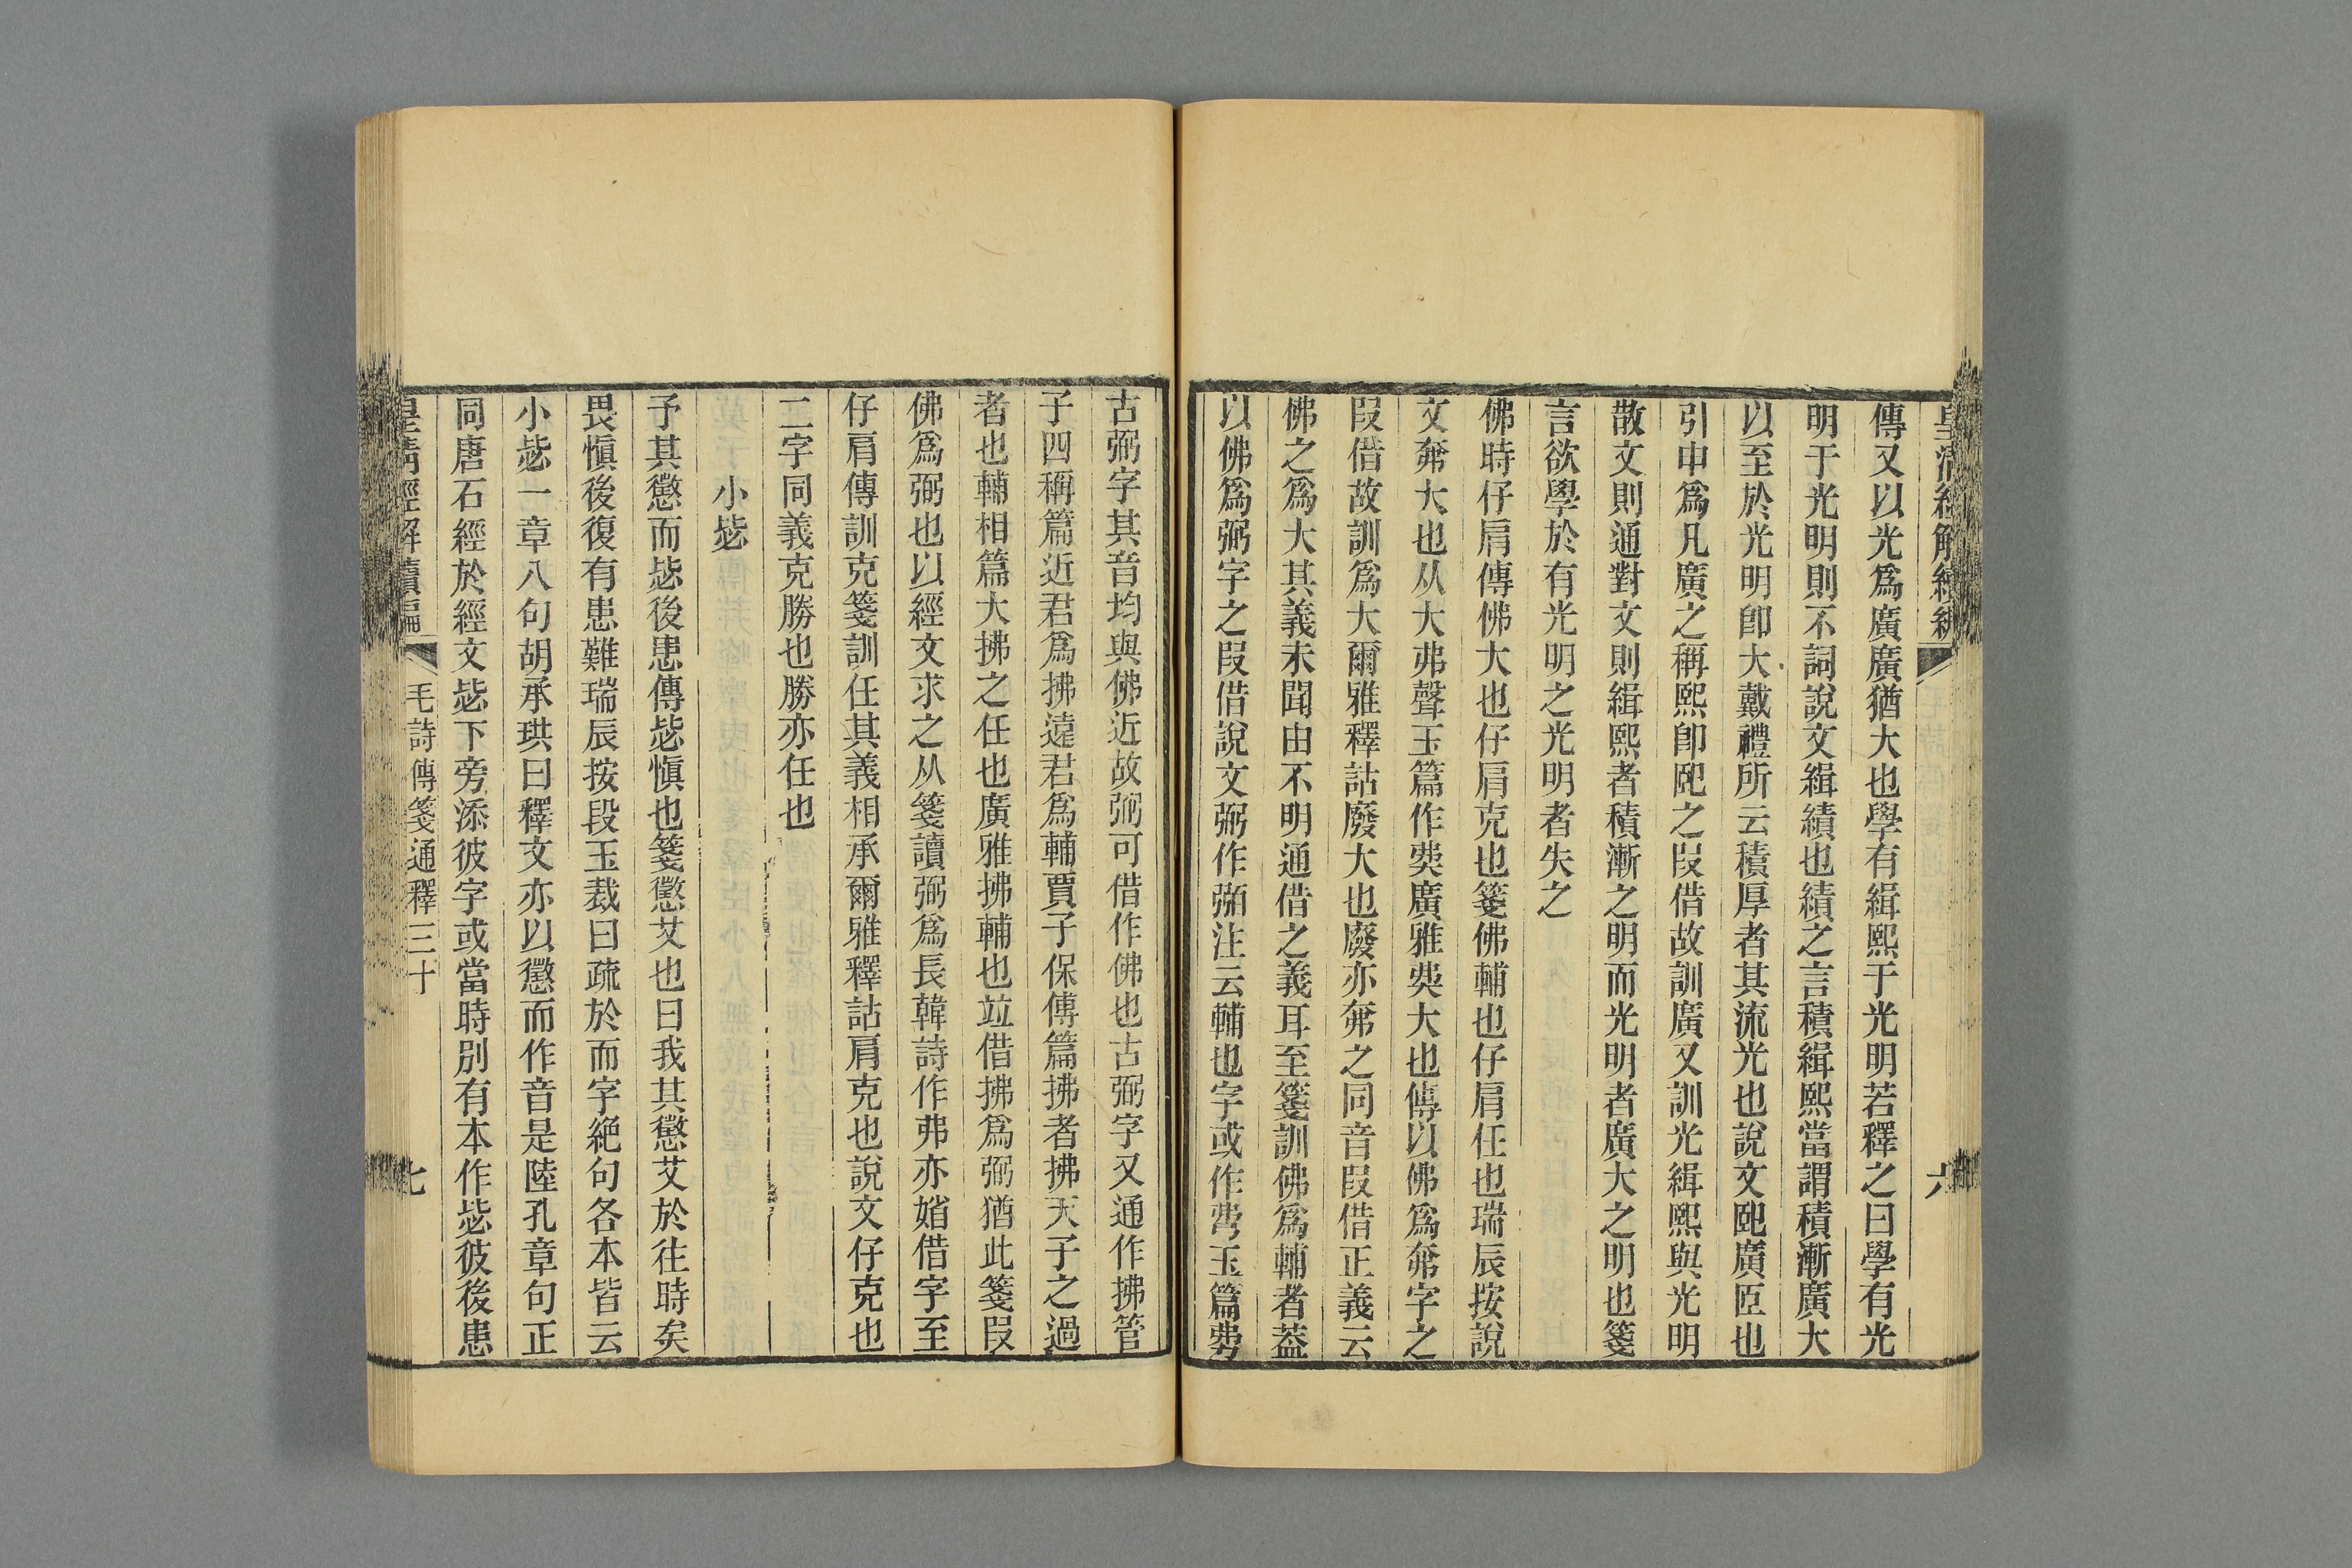 皇清經解續編
六
傳又以光爲廣廣猶大也學有緝熙于光明若釋之曰學有光
明于光明則不詞說文緝績也績之言積緝熙當謂積漸廣大
以至於光明卽大戴禮所云積厚者其流光也說文巸廣𦣞也
引申爲凡廣之稱熙卽巸之叚借故訓廣又訓光緝熙與光明
散文則通對文則緝熙者積漸之明而光明者廣大之明也箋
言欲學於有光明之光明者失之
佛時仔肩傳佛大也仔肩克也箋佛輔也仔肩任也瑞辰按說
文奫大也从大弗聲玉篇作㚕廣雅㚕大也傳以佛爲奫字之
叚借故訓爲大爾雅釋詁廢大也廢亦之同音叚借正義云
佛之爲大其義未聞由不明通借之義耳至箋訓佛爲輔者蓋
以佛爲弼字之叚借說文弼作弻注云輔也字或作玉篇
古弼字其音均與佛近故弼可借作佛也古弼字又通作拂管
子四稱篇近君爲拂遠君爲輔賈子保傅篇拂者拂天子之過
者也輔相篇大拂之任也廣雅拂輔也竝借拂爲弼猶此箋叚
佛爲弼也以經文求之从箋讀弼爲長韓詩作弗亦渻借字至
仔肩傳訓克箋訓任其義相承爾雅釋詁肩克也說文仔克也
二字同義克勝也勝亦任也
小毖
予其懲而毖後患傳毖愼也箋懲艾也曰我其懲艾於往時矣
畏愼後復有患難瑞辰按段玉裁曰疏於而字絶句各本皆云
小毖一章八句胡承珙曰釋文亦以懲而作音是陸孔章句正
同唐石經於經文毖下旁添彼字或當時別有本作毖彼後患
皇清經解續編
毛詩傳箋通釋三十
七